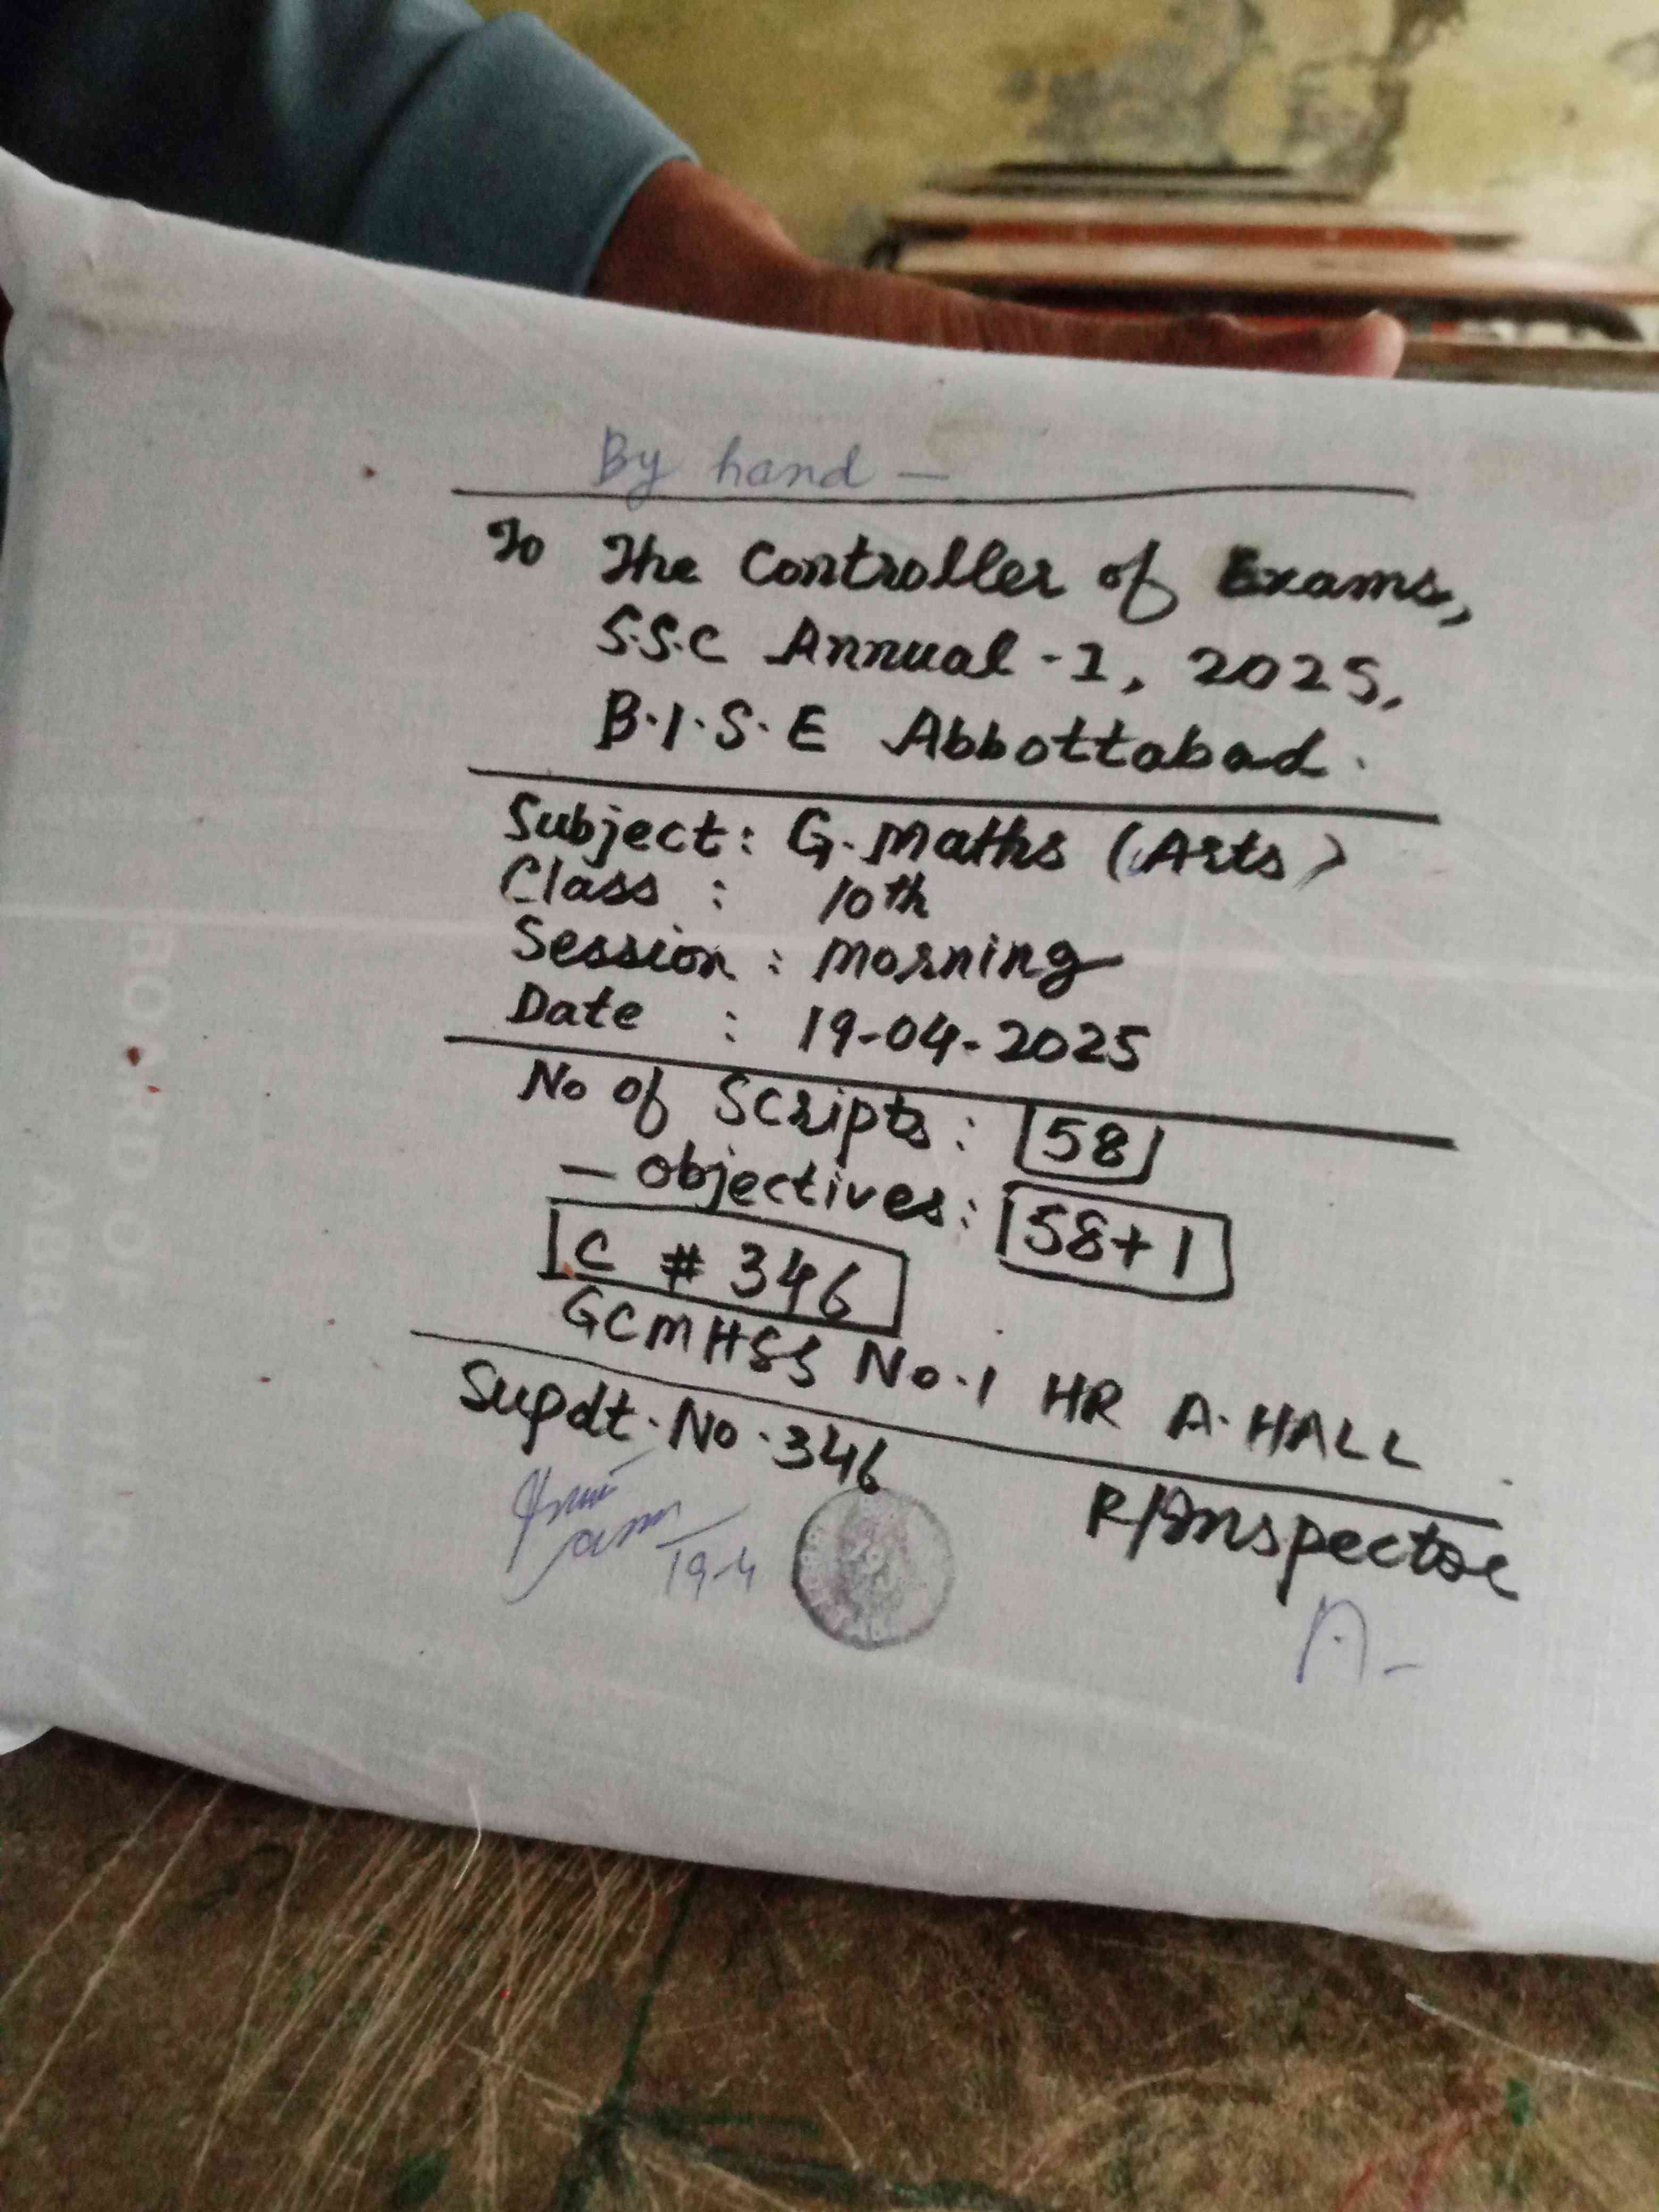 By hand —
To The Controller of Exams,
S.S.C Annual-1, 2025,
B.I.S.E Abbottabad.
Subject: G.Maths (Arts)
Class : 10th
Session : Morning
Date : 19-04-2025
No of Scripts: 58
— Objectives: 58+1
C # 346
GCMHSS No.1 HR A.HALL
Supdt. No. 346
R/Inspector
19-4